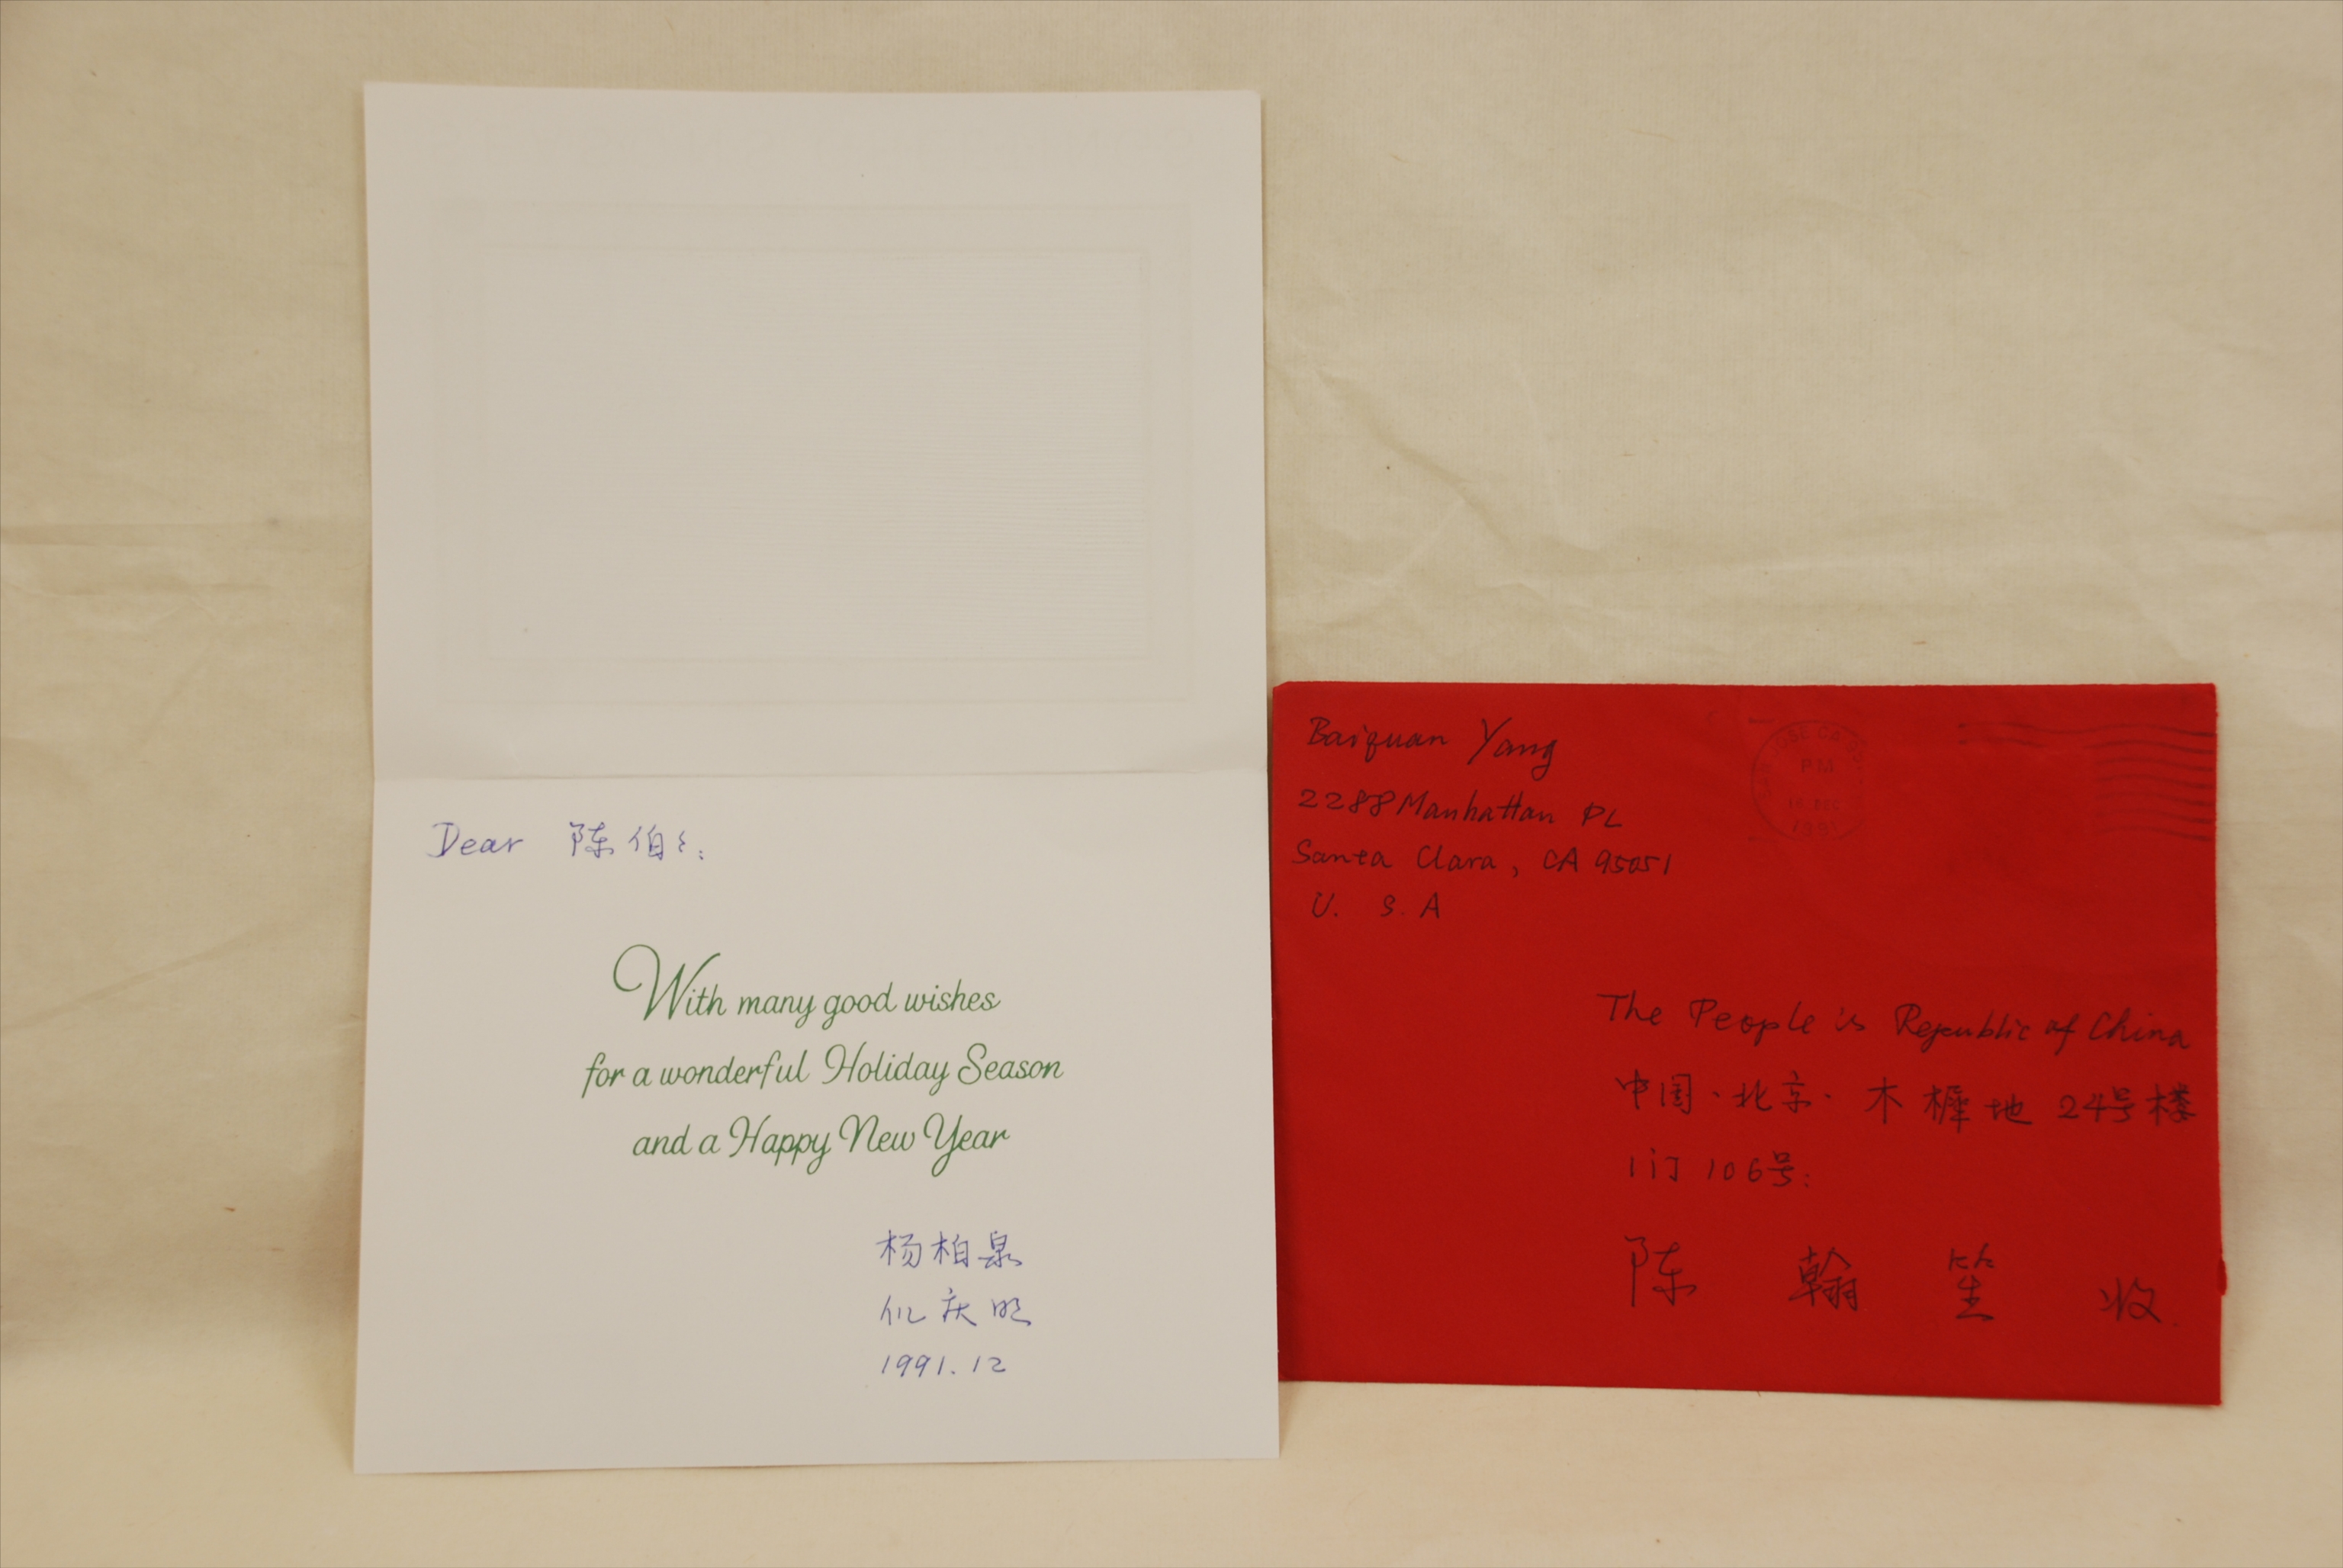 Dear 陈伯々:
With many good wishes
for a wonderful Holiday Season
and a Happy New Year
杨柏泉
仉庆明
1991.12
Baiquan Yang
2288 Manhattan PL
Santa Clara, CA 95051
U. S. A
SAN JOSE CA
PM
1991
The People is Republic of China
中国·北京·木樨地 24号楼
1门 106号:
陈 翰 笙 收.